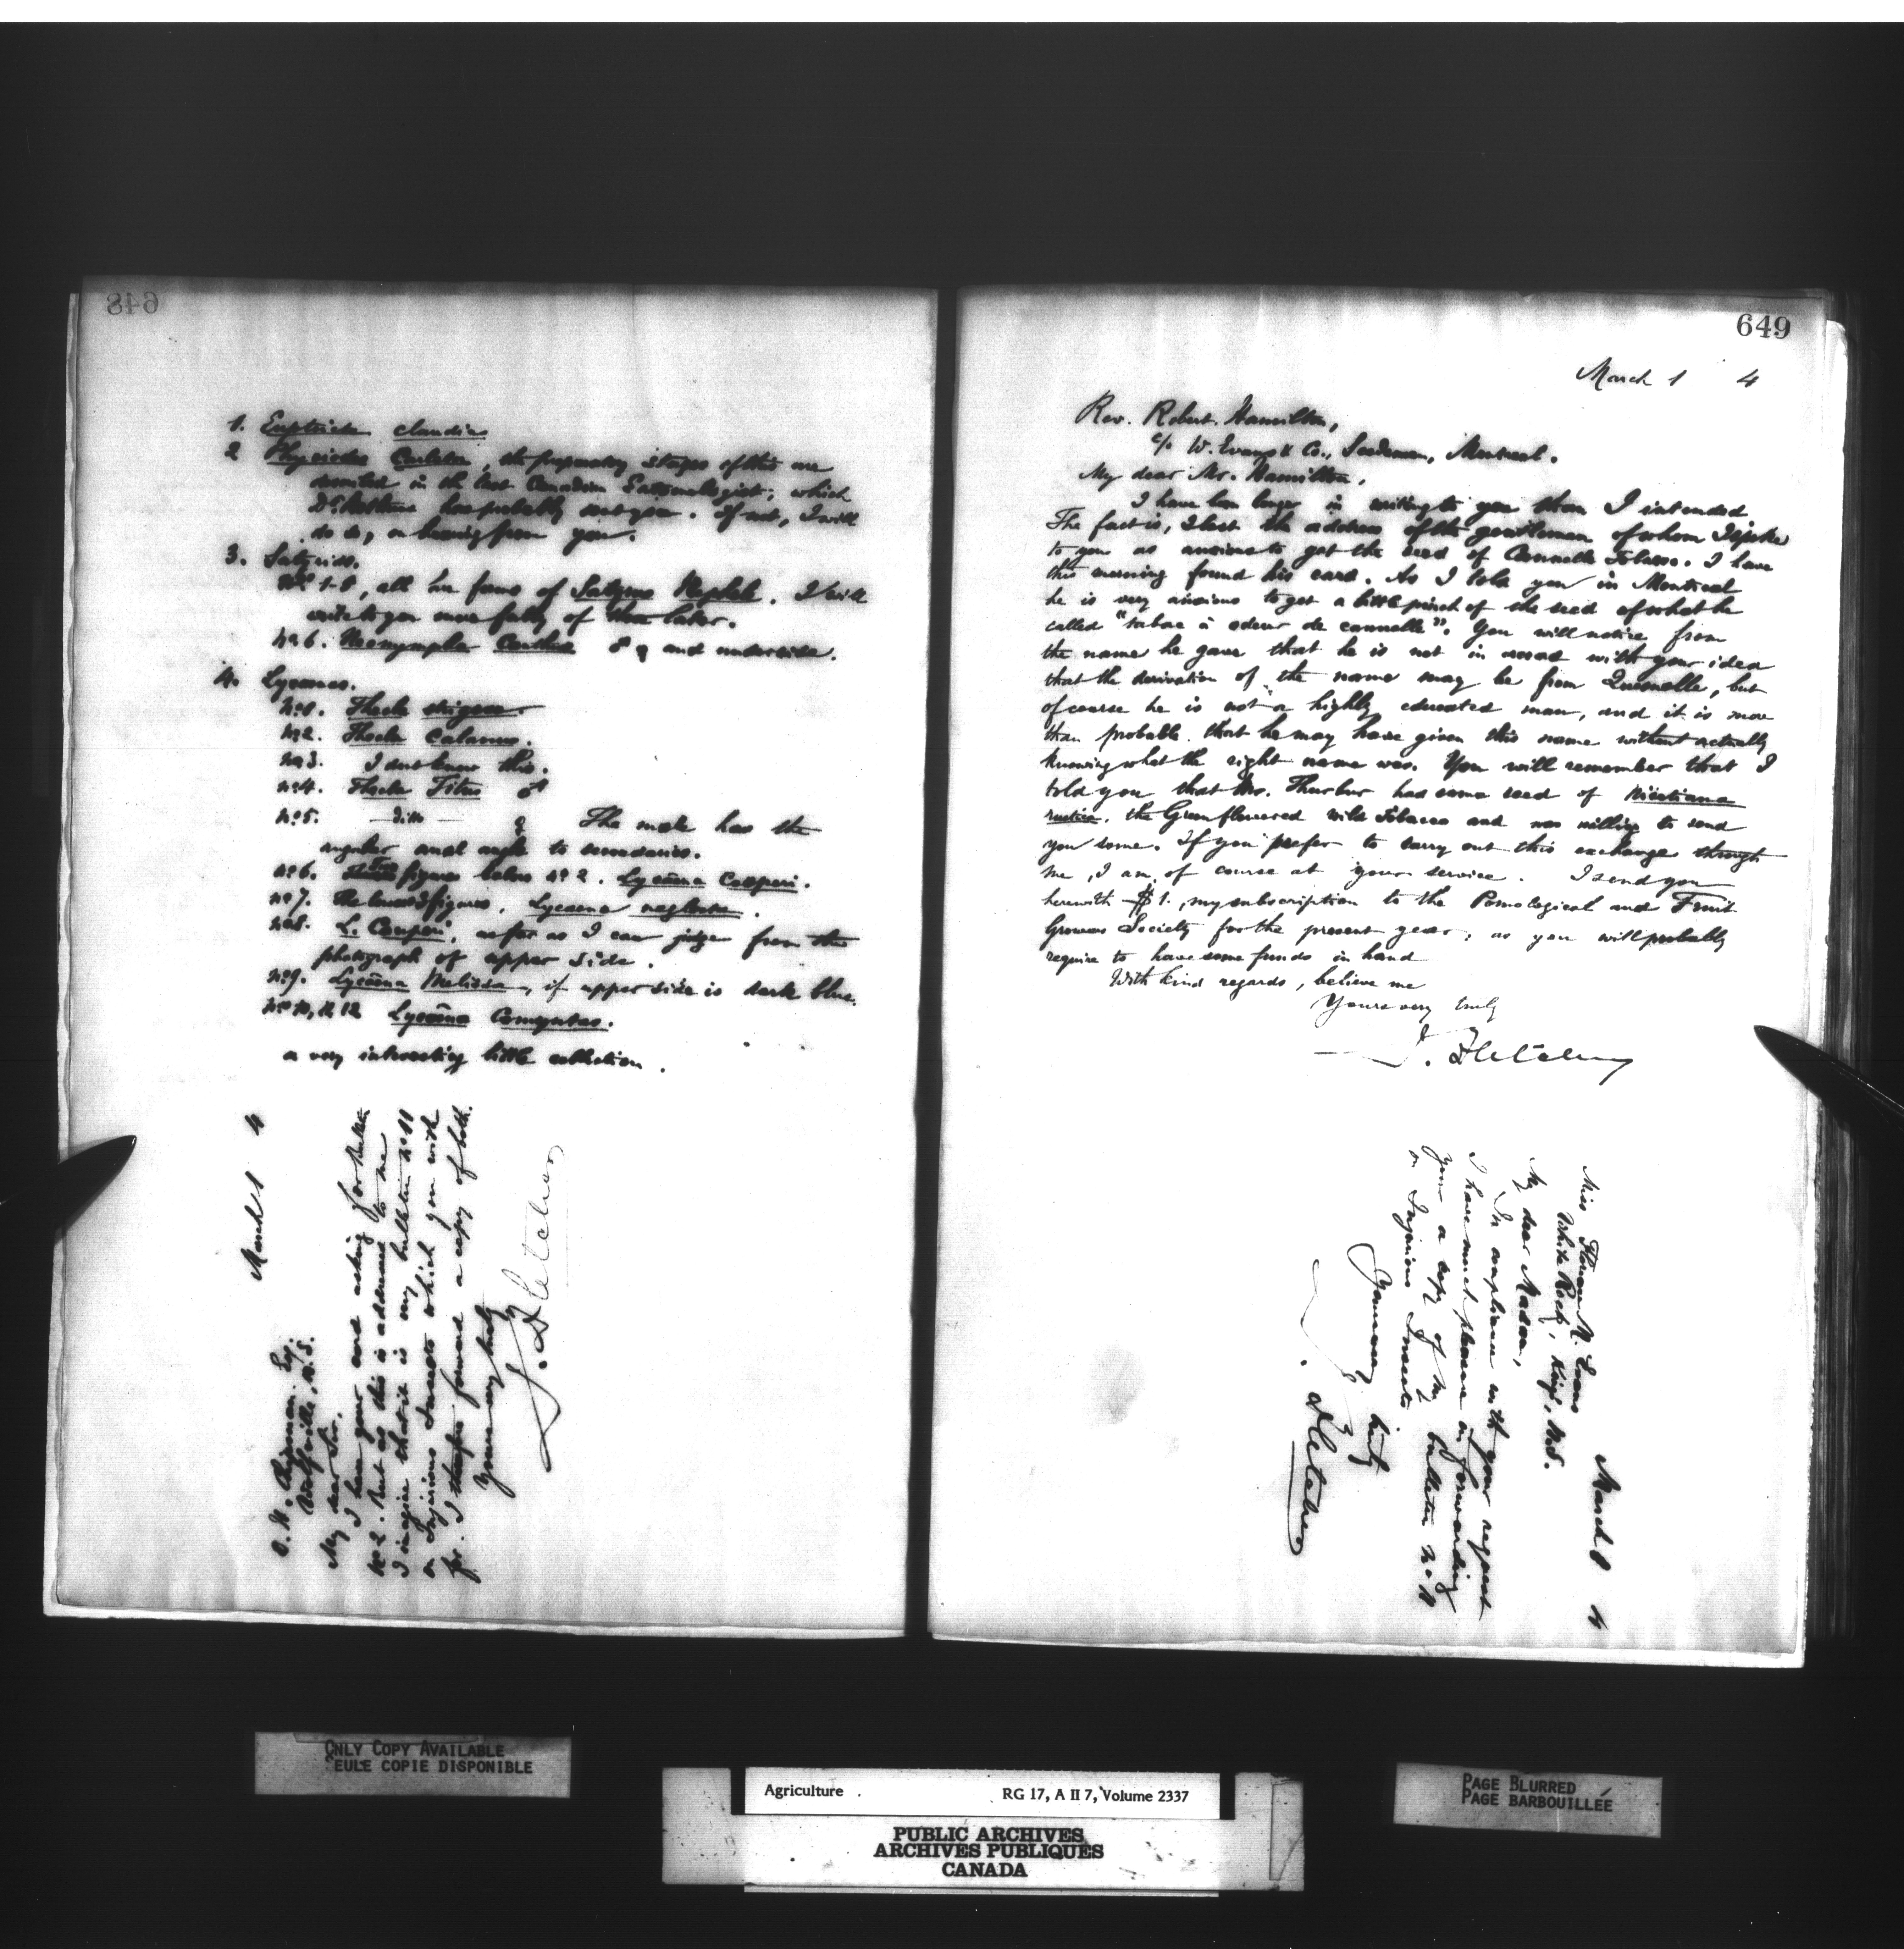 648
1. Euptoieta claudia
2 Phyciodes Carlota, the preparatory stages of this are
in the last Canadian Entomologist, which
Dr. has probably sent you. If not, I will
do so, on hearing from you.
3. Satyrids.
No. 1-5, all are forms of Satyrus Nephele. I will
write to you more fully of them later.
No 6. Neonympha Canthus ♂ ♀ and underside.
4. Lycaenas.
No 1. Thecla strigosa.
No 2. Thecla Calanus.
No 3. I don't know this.
No 4. Thecla Titus ♂
No 5. — ditto — ♀ The male has the
angular anal angle to secondaries.
No 6. figures below No 2. Lycaena Couperi.
No 7. The lower 3 figures, Lycaena neglecta.
No 8. L. Couperi, as far as I can judge from the
photograph of upper side.
No 9. Lycaena Melissa, if upper side is dark blue.
No 10, 11, 12 Lycaena Comyntas.
a very interesting little collection.
March 1 4
O. W. Chipman Esq.
Wolfville, N.S.
My dear Sir.
I have your card asking for Bulletin
No 2. But as this is addressed to me
I imagine that it is my bulletin No 11
on Injurious Insects which you wish
for. I therefore forward a copy of both.
Yours very truly
J. Fletcher
649
March 1 4
Rev. Robert Hamilton,
c/o W. Evans & Co., Seedsmen, Montreal.
My dear Mr. Hamilton,
I have been longer in writing to you than I intended
The fact is, I lost the address of the gentleman of whom I spoke
to you as anxious to get the seed of Cannelle Tobacco. I have
this morning found his card. As I told you in Montreal
he is very anxious to get a little pinch of the seed of what he
called "tabac à odeur de cannelle". You will notice from
the name he gave that he is not in accord with your idea
that the derivation of the name may be from Quesnelle, but
of course he is not a highly educated man, and it is more
than probable that he may have given this name without actually
knowing what the right name was. You will remember that I
told you that Mr. Thurber had some seed of Nicotiana
rustica, the Green flowered wild Tobacco and was willing to send
you some. If you prefer to carry out this exchange through
me, I am, of course at your service. I send you
herewith $1., my subscription to the Pomological and Fruit
Growers Society for the present year; as you will probably
require to have some funds in hand
With kind regards, believe me
Yours very truly
J. Fletcher
March 1 4
Miss Florence N. Evans
White Rock, Kings, N.S.
My dear Madam,
In compliance with your request
I have much pleasure in forwarding
you a copy of my bulletin No 11
on Injurious Insects
Yours very truly
J. Fletcher
ONLY COPY AVAILABLE
SEULE COPIE DISPONIBLE
Agriculture RG 17, A II 7, Volume 2337
PUBLIC ARCHIVES
ARCHIVES PUBLIQUES
CANADA
PAGE BLURRED
PAGE BARBOUILLÉE